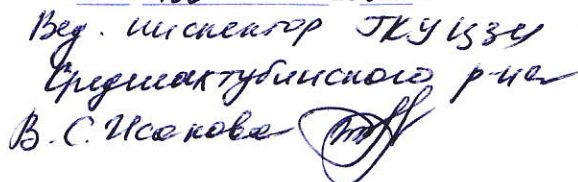 Вед. инспектор ГКУ ЦЗН
Среднеахтубинского р-на
В.С. Исакова